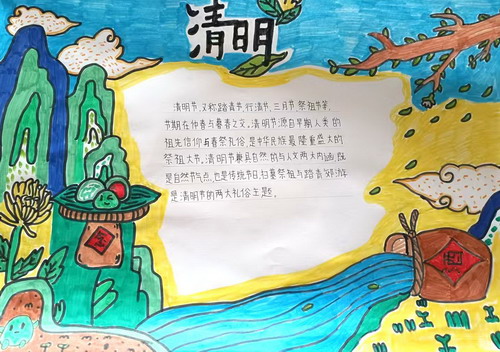 清明
清明节，又称踏青节、行清节、三月节、祭祖节等，
节期在仲春与暮春之交。清明节源自早期人类的
祖先信仰与春祭礼俗，是中华民族最隆重盛大的
祭祖大节。清明节兼具自然的与人文两大内涵，既
是自然节气点，也是传统节日，扫墓祭祖与踏青郊游
是清明节的两大礼俗主题。